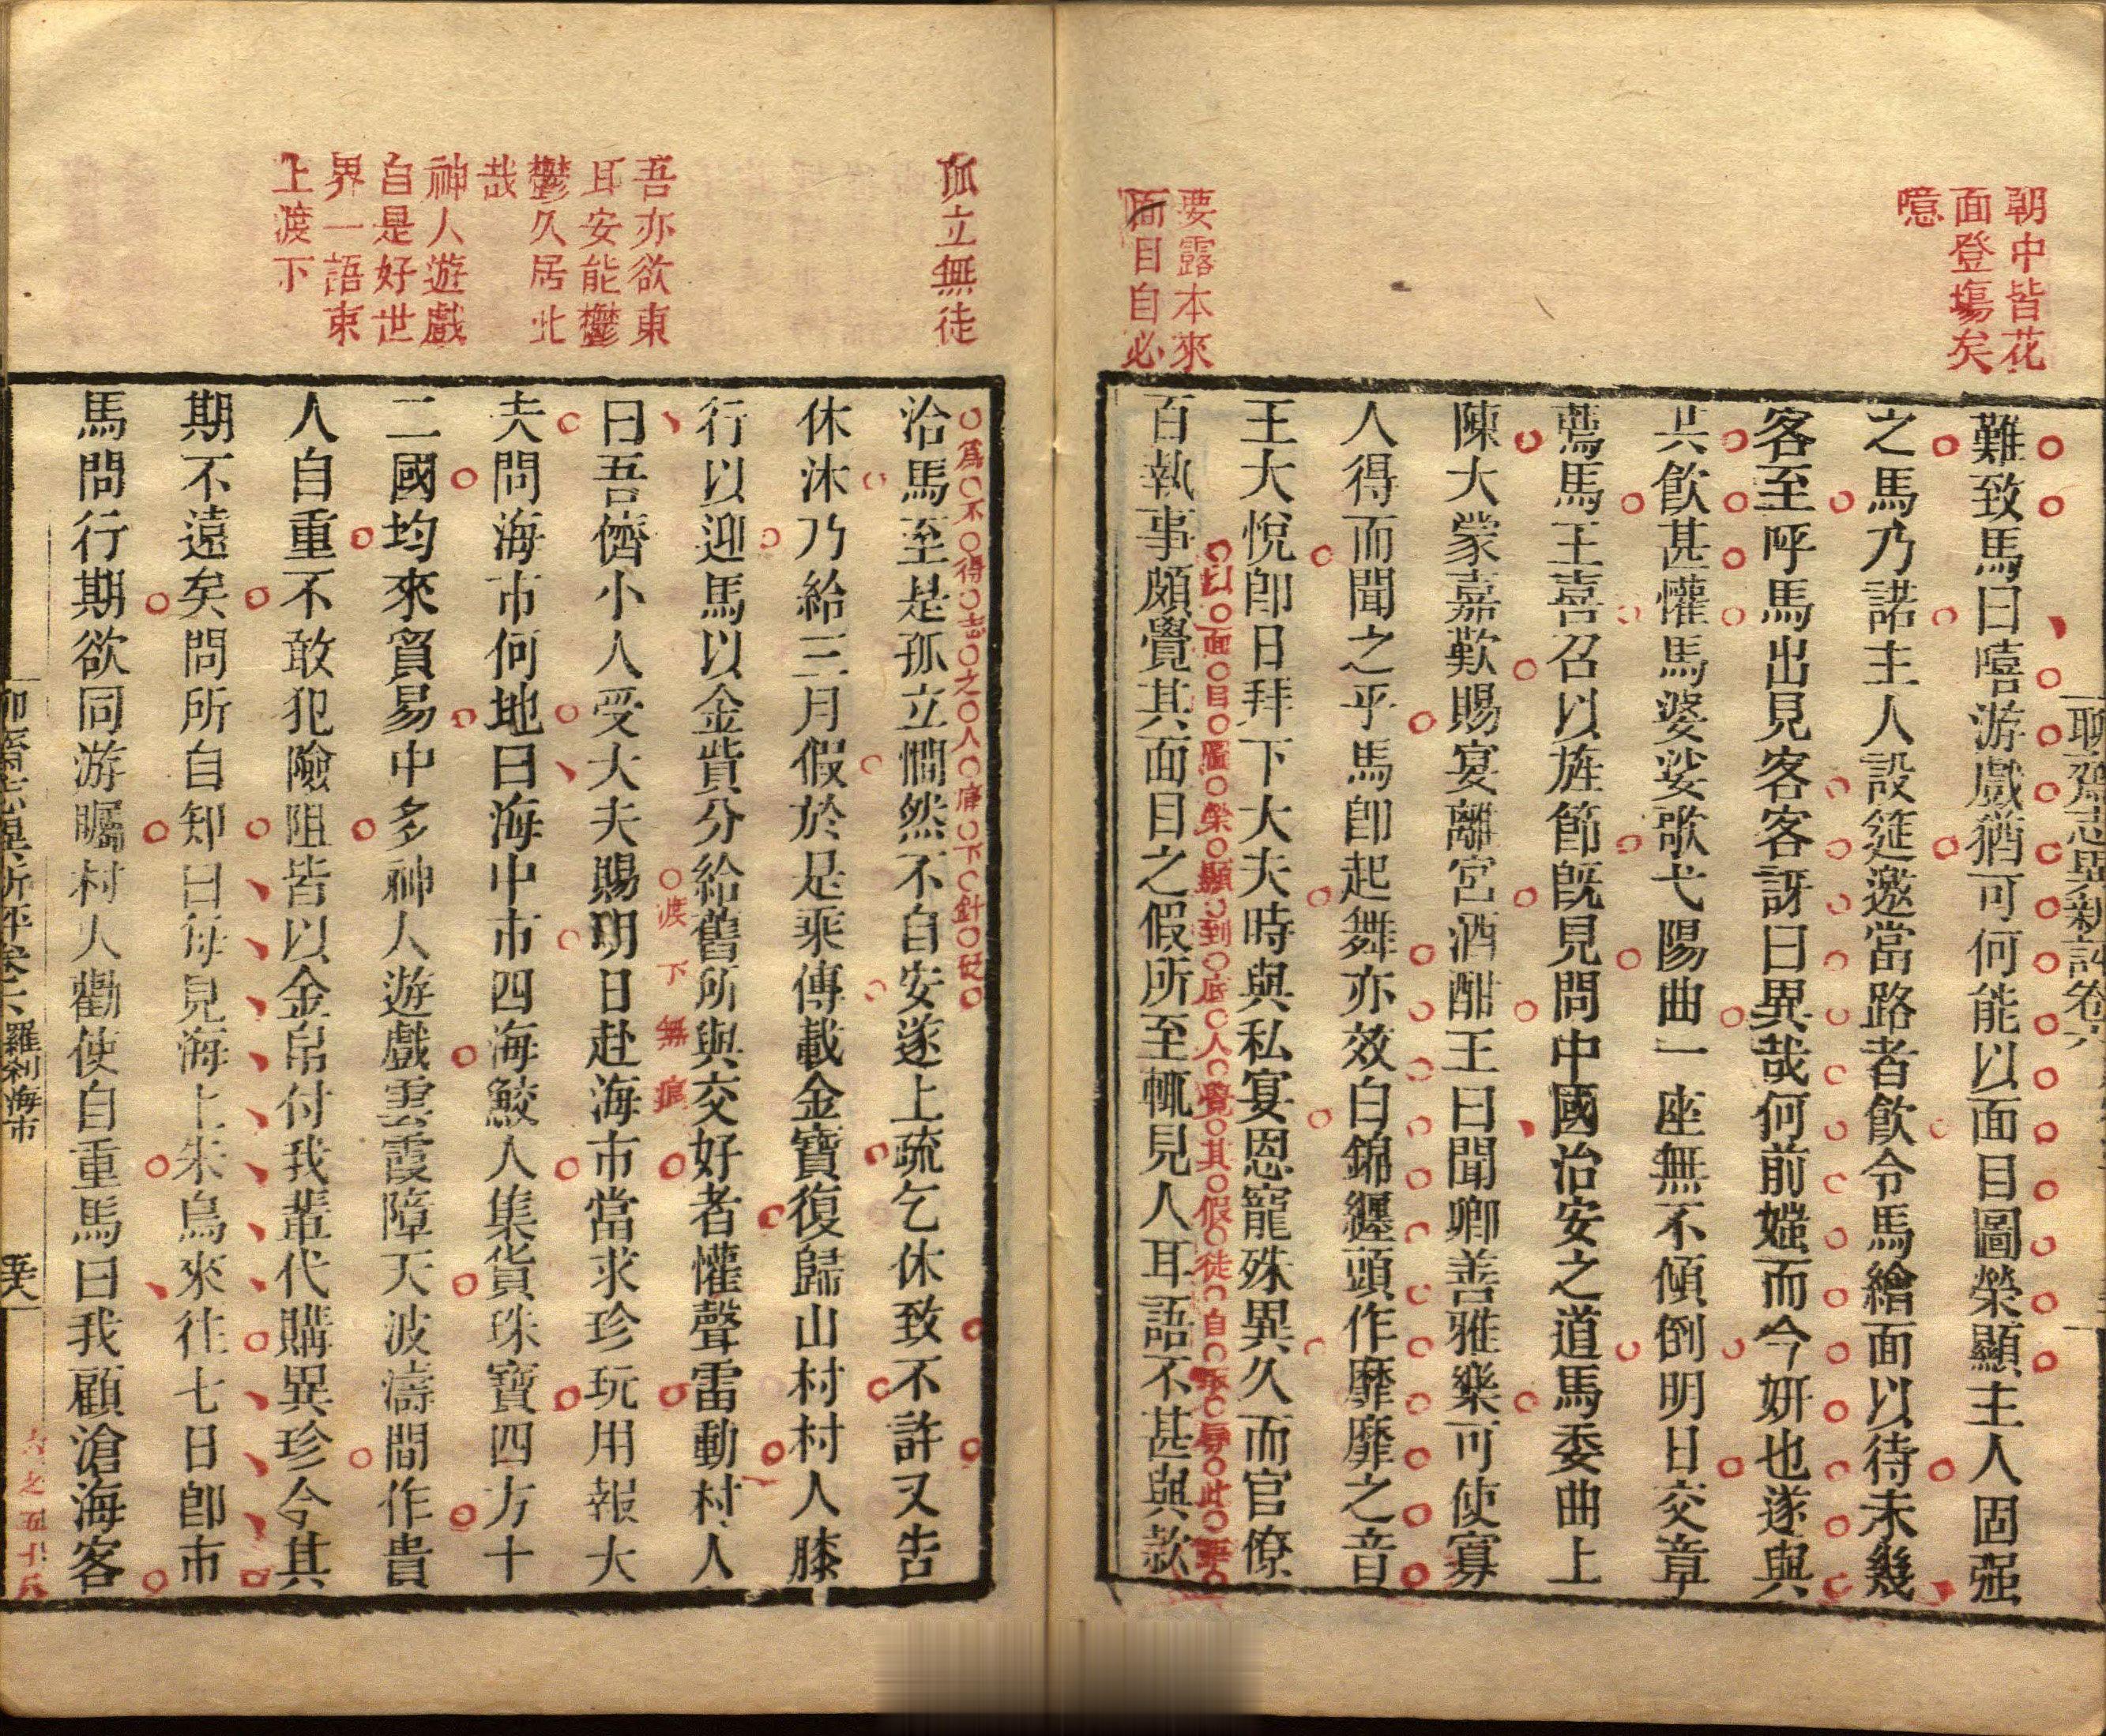 朝中皆花
面登場矣
噫
要露本來
面目自必
聊齋志異新評卷六
難致馬曰嘻游戲猶可何能以面目圖榮顯主人固强
之馬乃諾主人設筵邀當路者飲令馬繪面以待未幾
客至呼馬出見客客訝曰異哉何前媸而今妍也遂與
共飲甚懽馬婆娑歌弋陽曲一座無不傾倒明日交章
薦馬王喜召以旌節既見問中國治安之道馬委曲上
陳大蒙嘉歎賜宴離宮酒酣王曰聞卿善雅樂可使寡
人得而聞之乎馬卽起舞亦效白錦纏頭作靡靡之音
王大悅卽日拜下大夫時與私宴恩寵殊異久而官僚
以面目圖榮顯到底人覺其假徒自取辱此要
百執事頗覺其面目之假所至輒見人耳語不甚與款
孤立無徒
吾亦欲東
耳安能鬱
鬱久居此
哉
神人遊戲
自是好世
界一語束
上渡下
爲不得志之人痛下針砭
洽馬至是孤立憪然不自安遂上疏乞休致不許又告
休沐乃給三月假於是乘傳載金寶復歸山村村人膝
行以迎馬以金貲分給舊所與交好者懽聲雷動村人
渡下無痕
曰吾儕小人受大夫賜明日赴海市當求珍玩用報大
夫問海市何地曰海中市四海鮫人集貨珠寶四方十
二國均來貿易中多神人遊戲雲霞障天波濤間作貴
人自重不敢犯險阻皆以金帛付我輩代購異珍今其
期不遠矣問所自知曰每見海上朱鳥來往七日卽市
馬問行期欲同游矚村人勸使自重馬曰我顧滄海客
聊齋志異新評卷六 羅刹海市
六之五十八